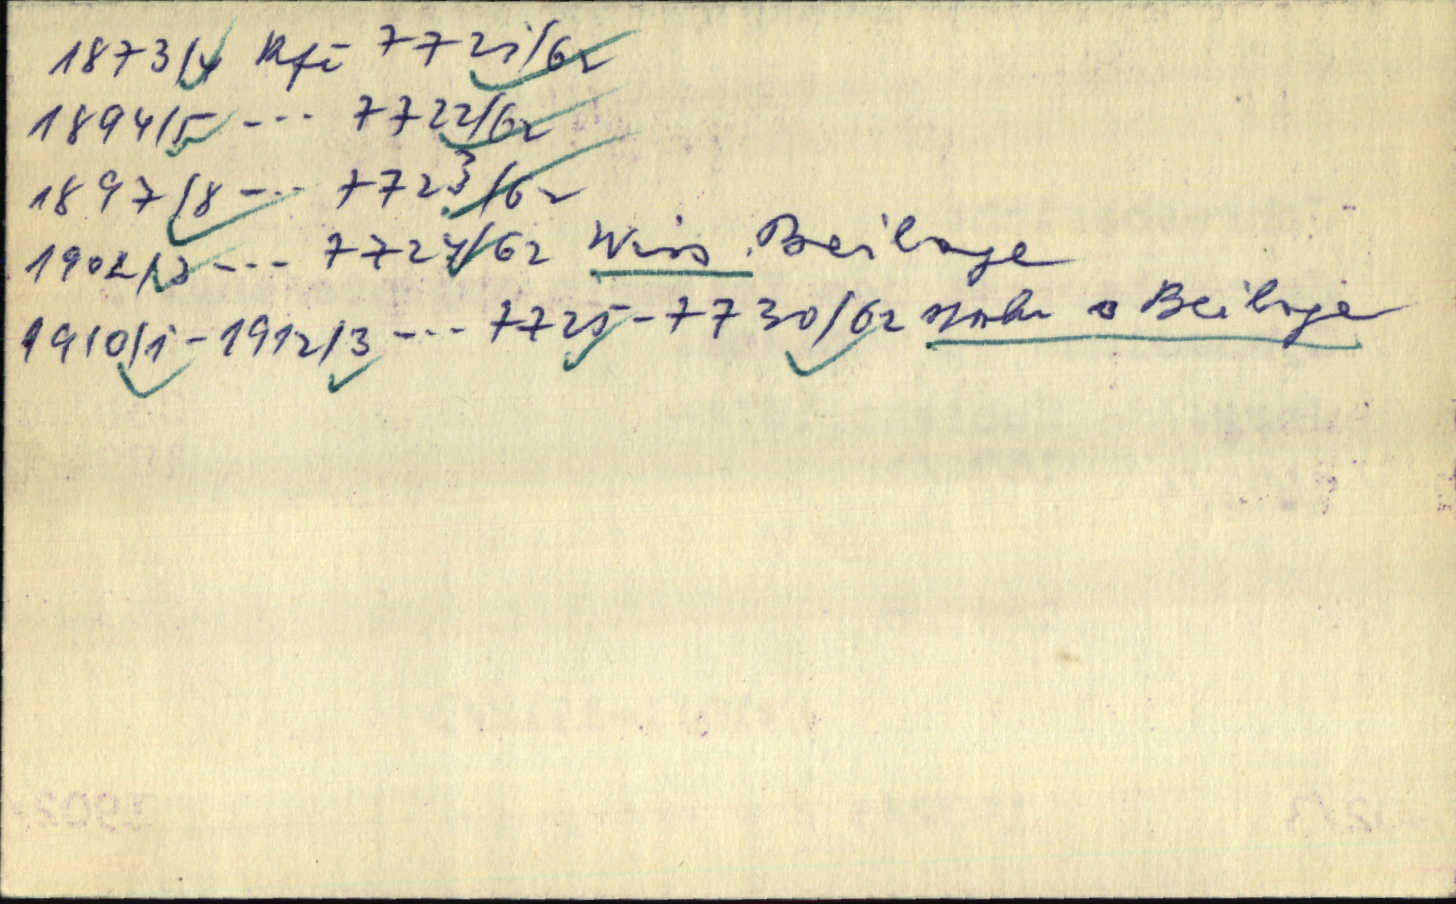 1873/4 7721/62
1894/5 -··· 7722/62
1897/8 -··· 7723/62
1902/3 -··· 7724/62 Wiss. Beilage
1910/1 - 1912/3 -··· 7725 - 7730/62 Beilage